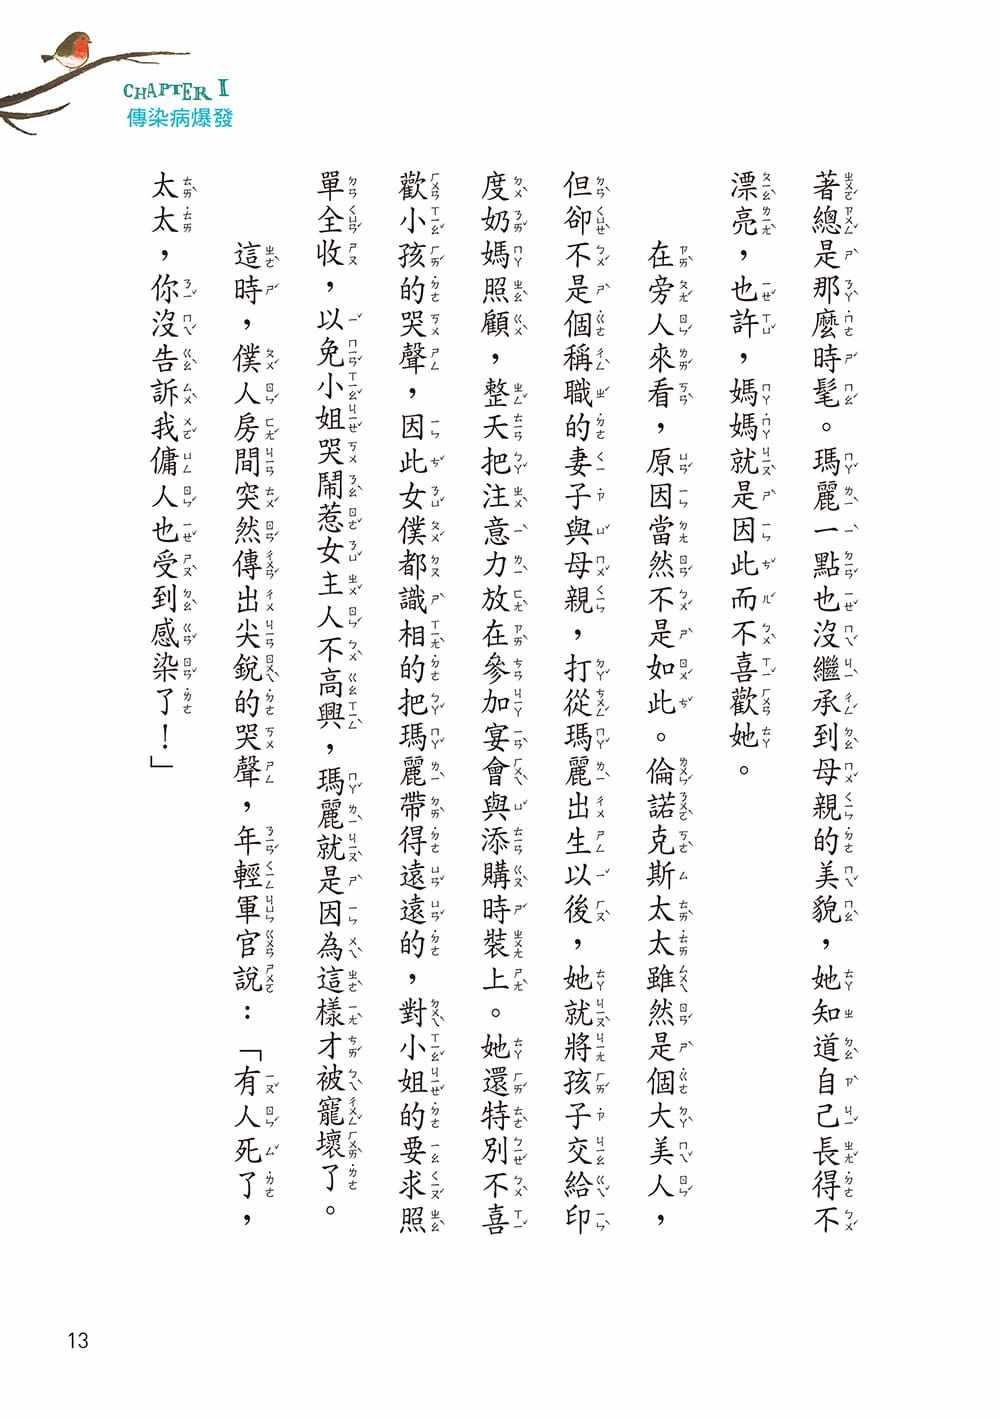 CHAPTER 1
傳染病爆發
著總是那麼時髦。瑪麗一點也沒繼承到母親的美貌，她知道自己長得不
漂亮，也許，媽媽就是因此而不喜歡她。
在旁人來看，原因當然不是如此。倫諾克斯太太雖然是個大美人，
但卻不是個稱職的妻子與母親，打從瑪麗出生以後，她就將孩子交給印
度奶媽照顧，整天把注意力放在參加宴會與添購時裝上。她還特別不喜
歡小孩的哭聲，因此女僕都識相的把瑪麗帶得遠遠的，對小姐的要求照
單全收，以免小姐哭鬧惹女主人不高興，瑪麗就是因為這樣才被寵壞了。
這時，僕人房間突然傳出尖銳的哭聲，年輕軍官說：「有人死了，
太太，你沒告訴我傭人也受到感染了！」
13